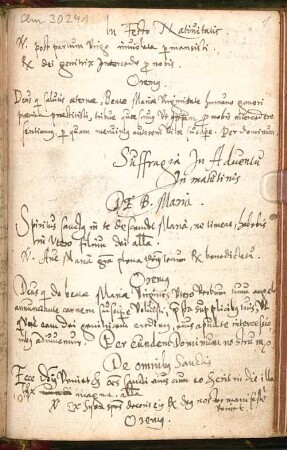 Clm 30241
In Festo Nativitatis
V. post partum Virgo inviolata permansisti
R. dei genitrix intercede pro nobis
Oremus
Deus q salutis aeternae, Beatae Mariae Virginitate
humano generi
praemia praestitisti, tribue quaesumus, ut ipsam pro nobis intercedere
sentiamus, per quam meruimus auctorem vitae suscipere. Per Dominum
Suffragia In Adventu
In matutinis
DE B. Maria.
Spiritus Sanctus in te descendet Maria, ne timeas, habebis
in utero filium dei alla
V. Ave Maria gra plena dominus tecum R. benedicta tu
Oremus
Deus q de beatae Mariae Virginis utero Verbum tuum angelo
annunciante carnem suscipere voluisti, pra supplicibus tuis, ut
qui eam dei genitricem credimus, eius apud te intercessio
adiuvemur. Per eundem Dominum nostrum
De omnibus Sanctis
Ecce dominus Veniet et oes Sancti eius cum eo et erit in die illa
lux magna, alla
V. Ex Syon species decoris eius R. deus nor manifeste
veniet.
Oremus